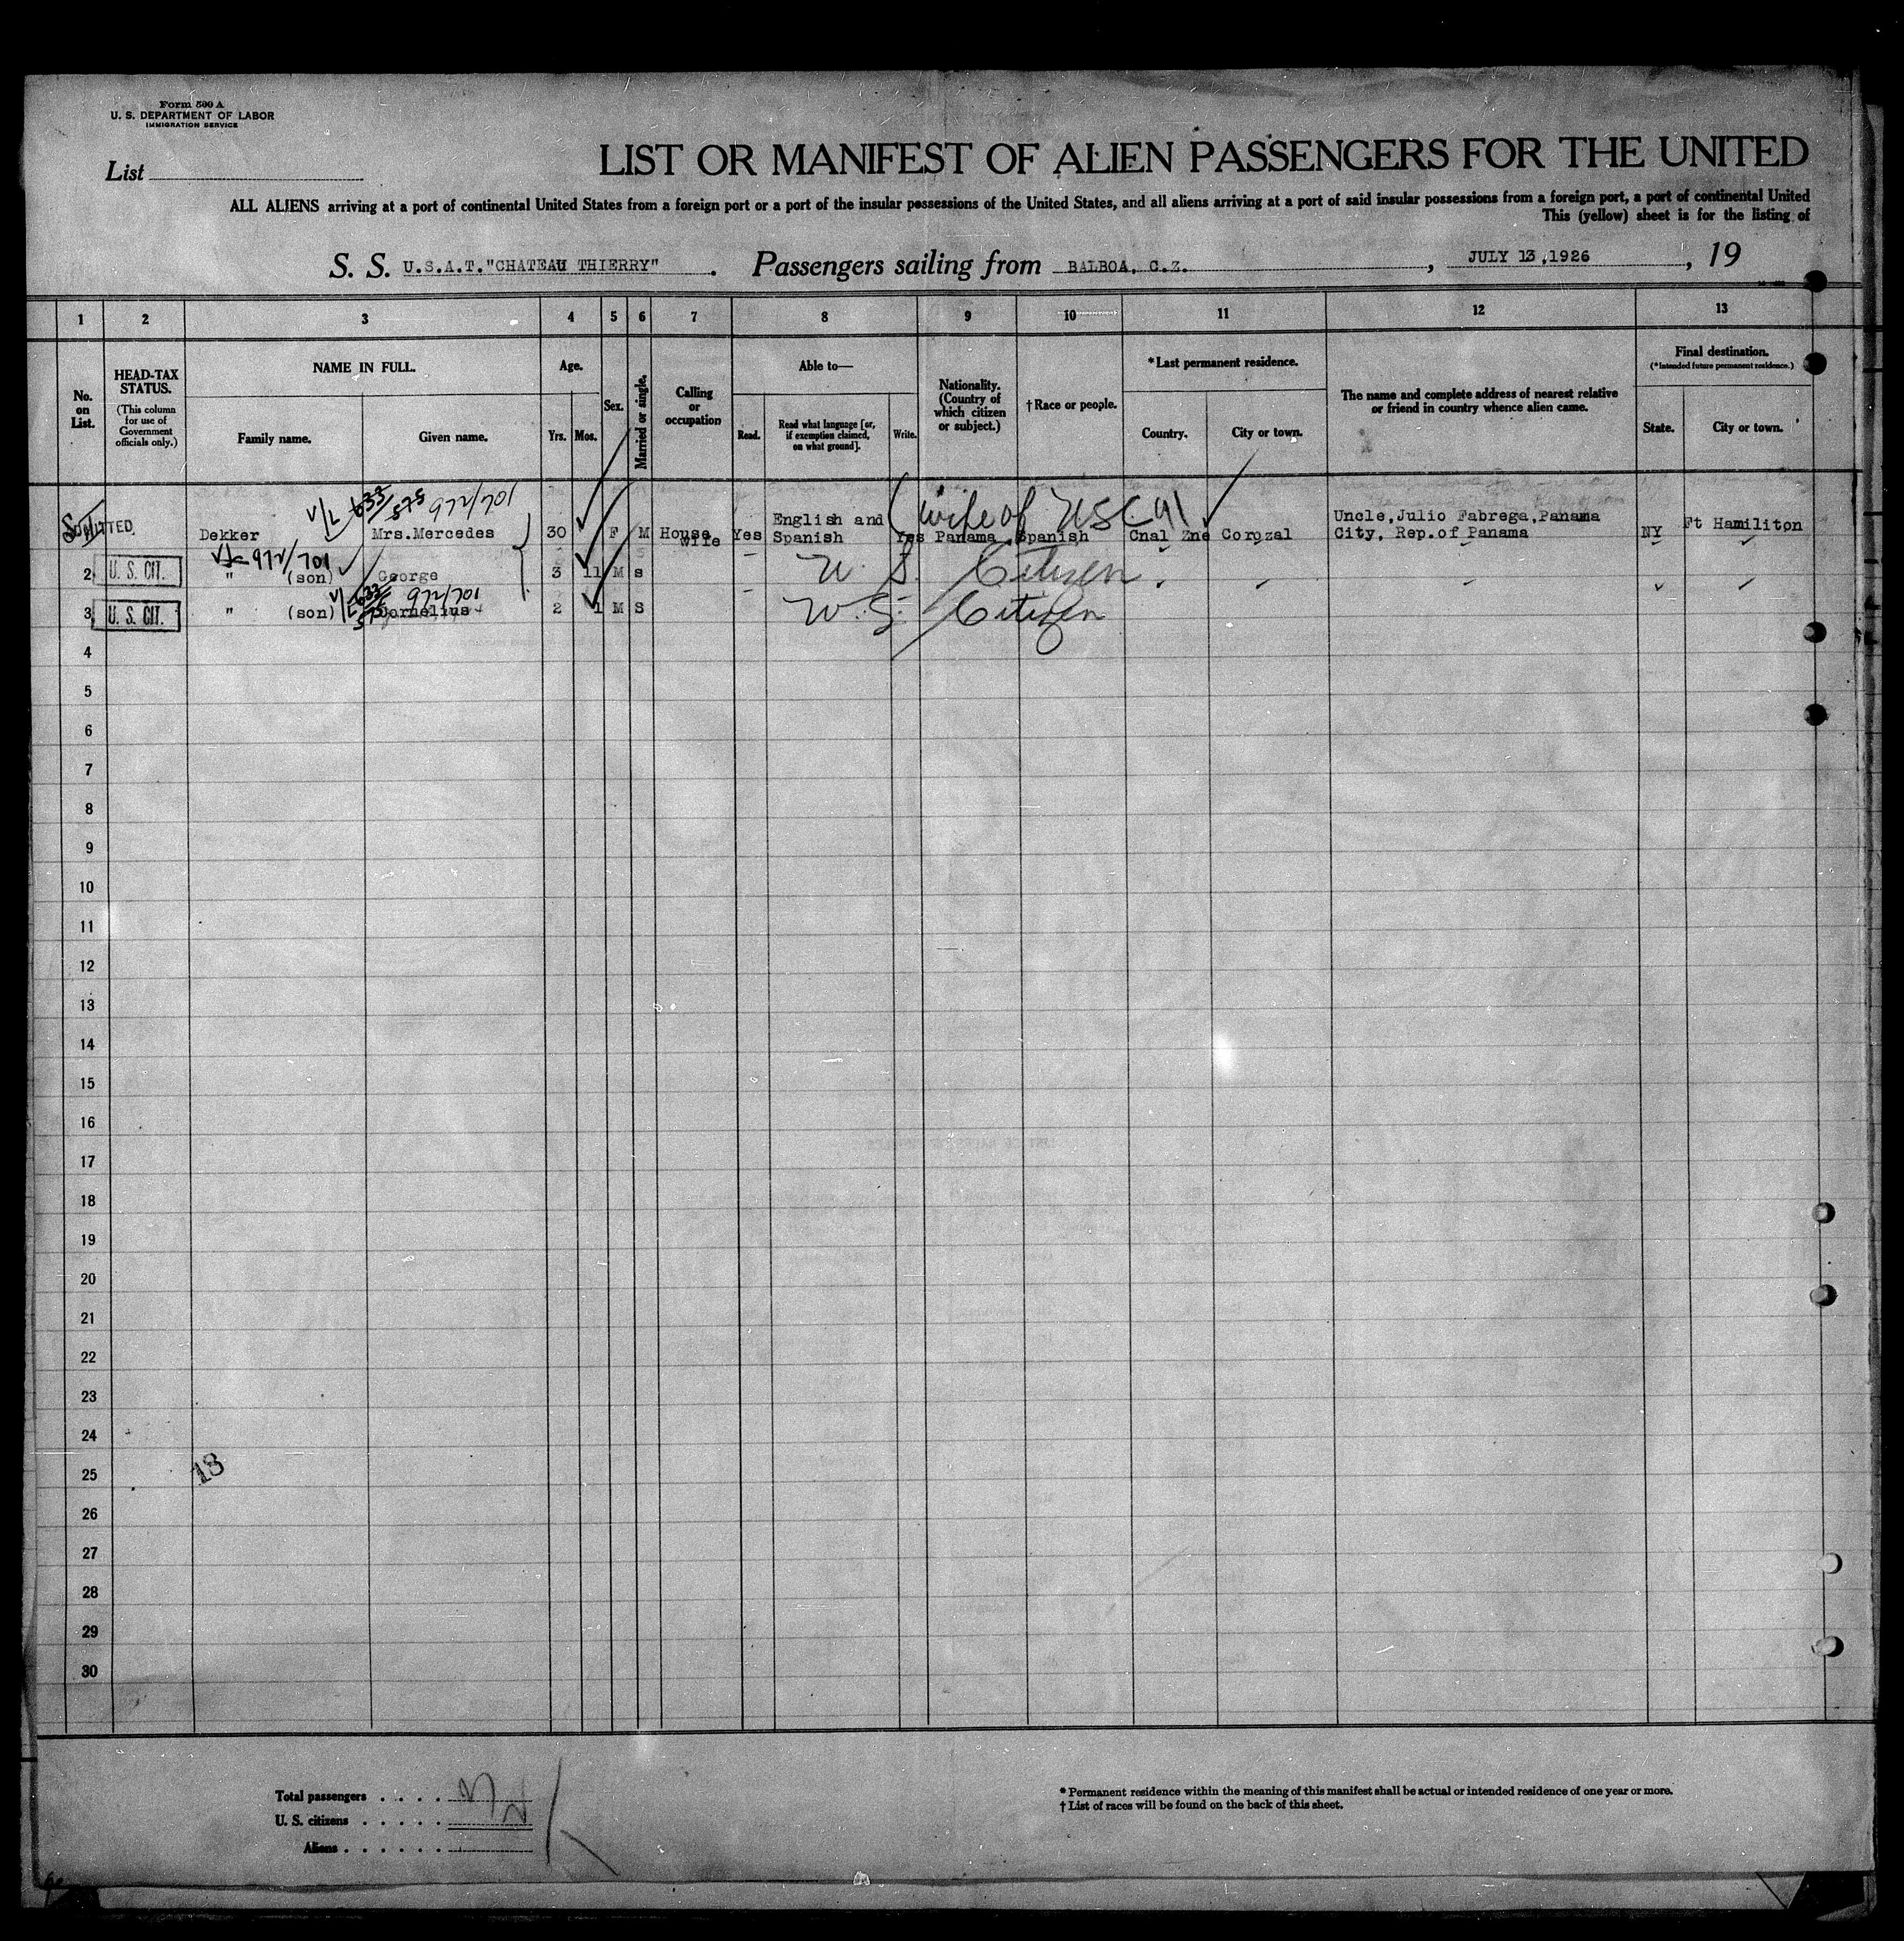 Form 500 A
U. S. DEPARTMENT OF LABOR
IMMIGRATION SERVICE
List
LIST OR MANIFEST OF ALIEN PASSENGERS FOR THE UNITED
ALL ALIENS arriving at a port of continental United States from a foreign port or a port of the insular possessions of the United States, and all aliens arriving at a port of said insular possessions from a foreign port, a port of continental United
This (yellow) sheet is for the listing of
S. S. U.S.A.T."CHATEAU THIERRY". Passengers sailing from BALBOA, C.Z., JULY 13,1926, 19
1 2 3 4 5 6 7 8 9 10 11 12 13
No. on List.
HEAD-TAX STATUS.
(This column for use of Government officials only.)
NAME IN FULL.
Family name. Given name.
Age.
Yrs. Mos.
Sex.
Married or single.
Calling or occupation
Able to—
Read. Read what language [or, if exemption claimed, on what ground]. Write.
Nationality. (Country of which citizen or subject.)
†Race or people.
*Last permanent residence.
Country. City or town.
The name and complete address of nearest relative or friend in country whence alien came.
Final destination.
(*Intended future permanent residence.)
State. City or town.
V/L 633/575 972/701
(wife of USC
ADMITTED Dekker Mrs.Mercedes 30 F M House wife Yes English and Spanish Yes Panama Spanish Cnal Zne Corozal Uncle,Julio Fabrega,Panama City, Rep.of Panama NY Ft Hamiliton
972/701
2 U. S. CIT. " (son) George 3 11 M s U. S. Citizen
V/L 633/575 972/701
3 U. S. CIT. " (son) Cornelius 2 1 M S U.S. Citizen
4
5
6
7
8
9
10
11
12
13
14
15
16
17
18
19
20
21
22
23
24
25
18
26
27
28
29
30
Total passengers
U. S. citizens
Aliens
* Permanent residence within the meaning of this manifest shall be actual or intended residence of one year or more.
† List of races will be found on the back of this sheet.